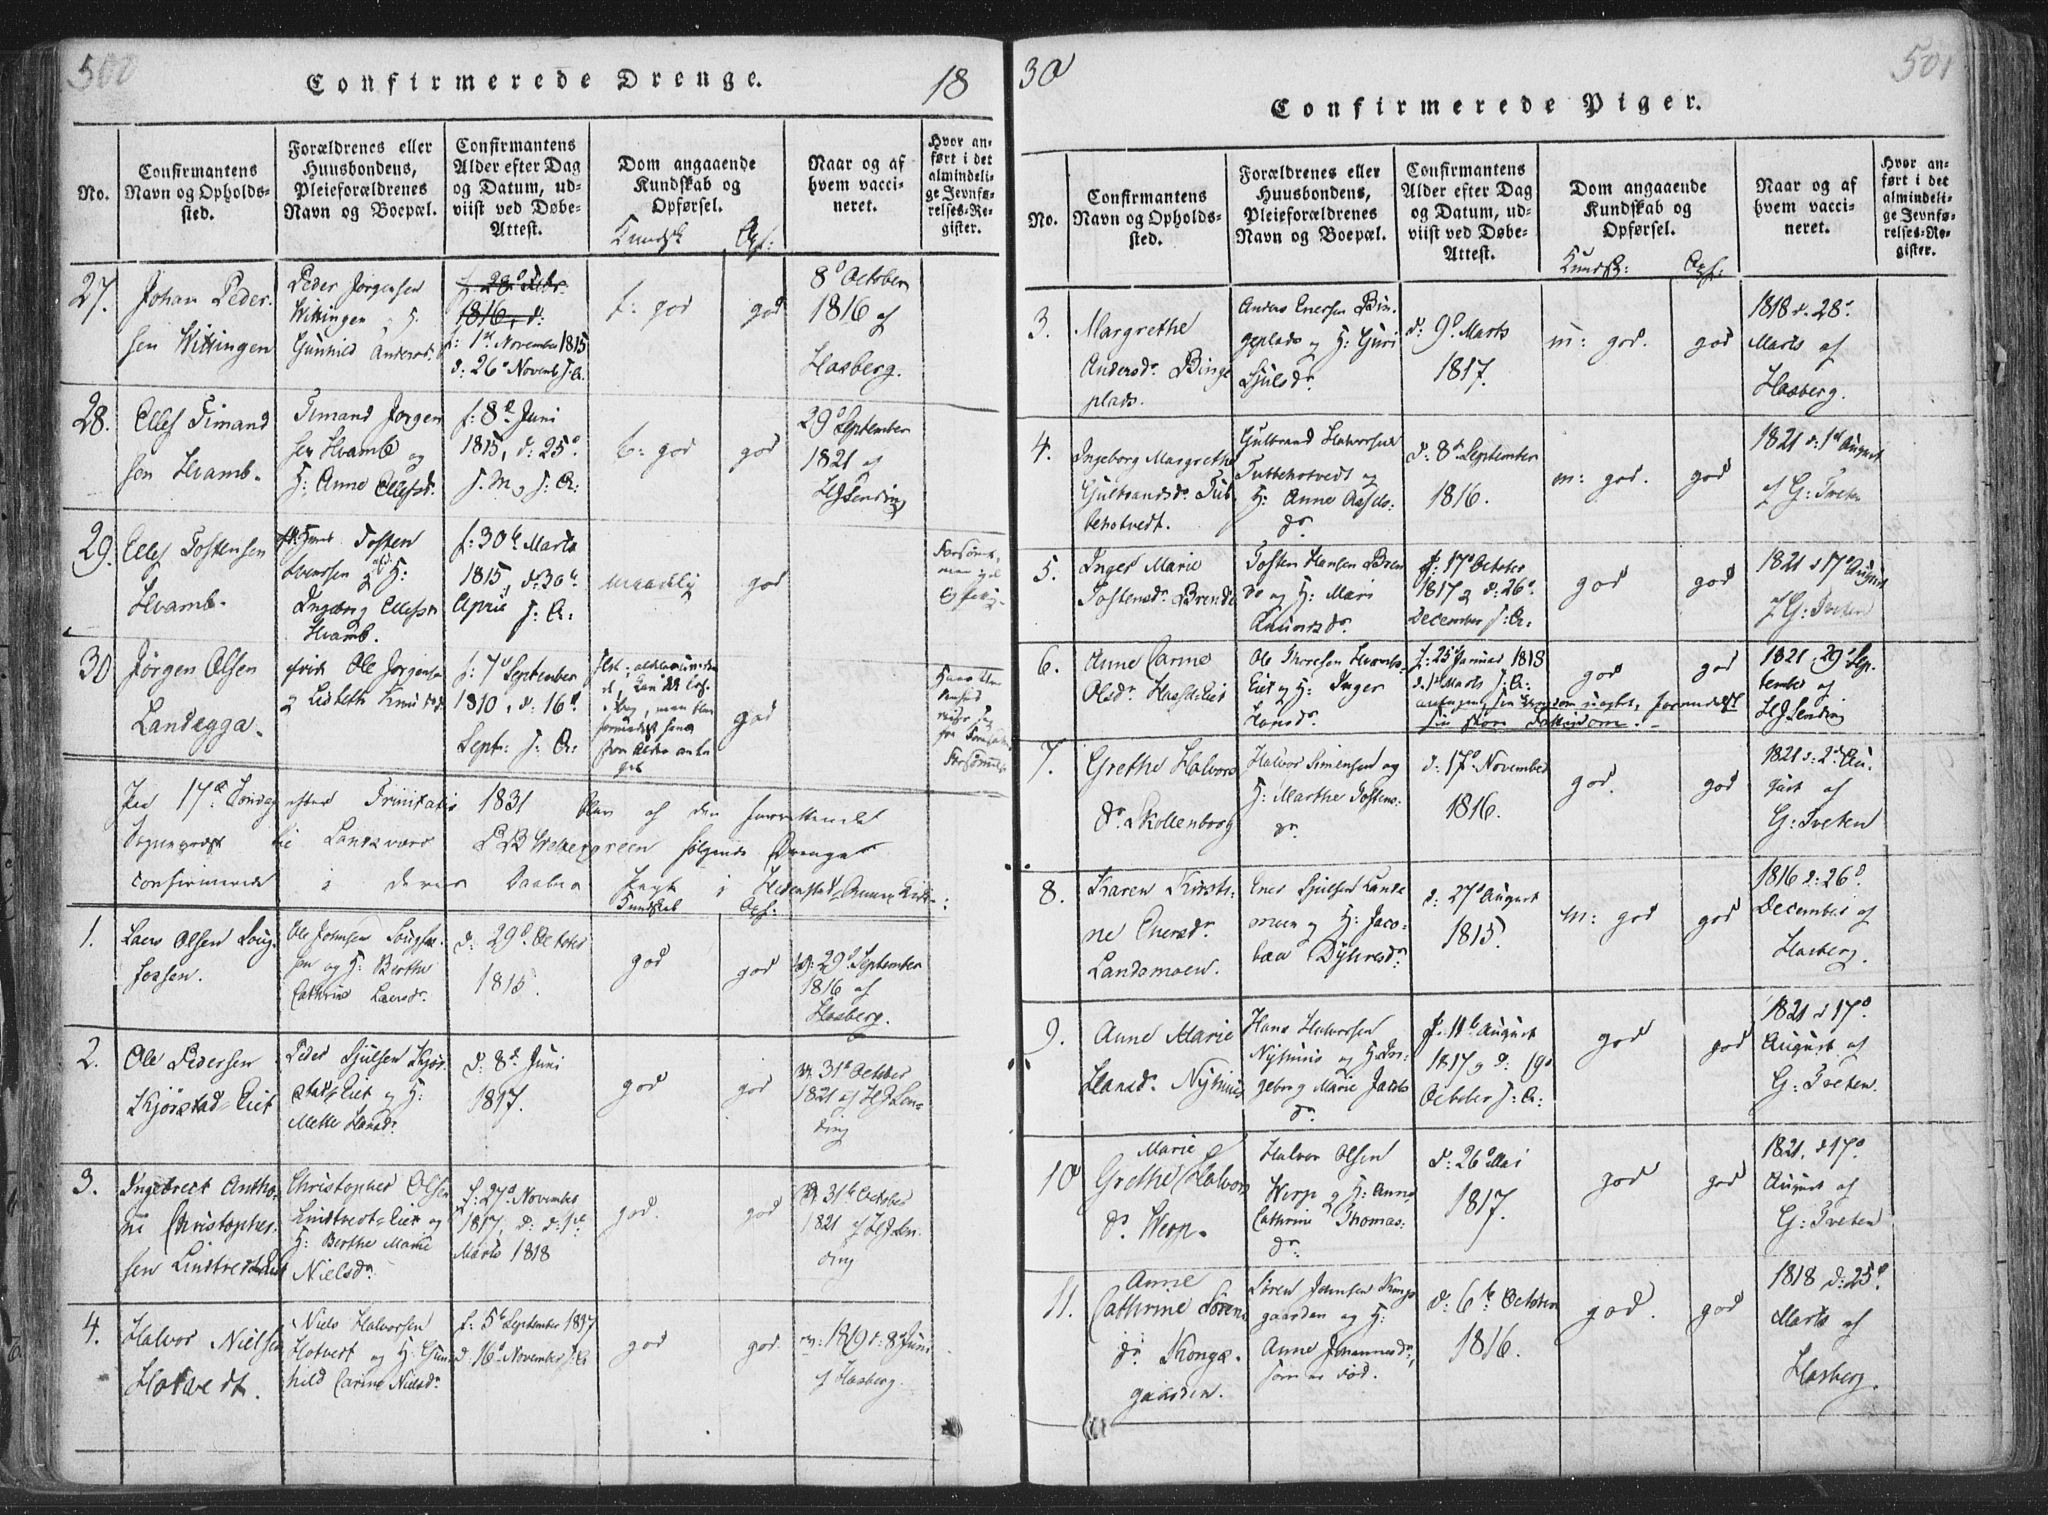 500
Confirmerede Drenge.
18
No.
Confirmantens
Navn og Opholds-
sted.
Forældrenes eller
Huusbondens,
Pleieforældrenes
Navn og Boepæl.
Confirmantens
Alder efter Dag
og Datum, ud-
viist ved Døbe-
Attest.
Dom angaaende
Kundskab og
Opførsel.
Kundsk
Opf:
Naar og af
hvem vacci-
neret.
Hvor an-
ført i det
almindeli-
ge Jevnfø-
relses-Re-
gister.
27.
Johan Peder-
sen Wittingen
Peder Jørgensen
Wittingen og H.
Gunhild Andersd.
1816, d:
f: 1ste November 1815
d: 26de Novemb. J. A.
t: god
god
8de October
1816 af
Hasberg.
28.
Ellef Timand
sen Hvamb.
Timand Jørgen
sen Hvamb og
H: Anne Ellefsd.
f: 8de Juni
1815, d: 25de
s. M., s: A:
t: god
god
29de September
1821 af
HJSending
29.
Ellef Tostensen
Hvamb.
Tosten
Svensen og H:
Ingeborg Ellefsd
Hvamb.
f: 30te Marts
1815, d: 30te
April s: A:
maadelig
god
30
Jørgen Olsen
Landegga.
Ole Jørgensen
og Lisbeth Knudsd.
f: 7de September
1810, d: 16de
Sept: s: A:
god
Paa 17de Søndag efter Trinitatis 1831 blev af den forrettende
Sogneprest til Sandsværd følgende Drenge
confirmerede i deres Daabs Pagt i Hedenstad Annex Kirke:
Kundskab
Opf:
1.
Lars Olsen Soug-
fossen.
Ole Johnsen Sougfos-
sen og H: Berthe
Cathrine Larsdr.
d: 29de October
1815.
god
god
29de September
1816 af
Hasberg.
2.
Ole Pedersen
Skjørstad-Eiet
Peder Sjulsen Skjør-
stad-Eiet og H:
Mette Hansdr.
d: 8de Juni
1817.
god
god
31te October
1821 af HJSen-
ding
3.
Ingebrect Antho-
ni Christopher-
sen Lindtvedt-Eiet
Christopher Olsen
Lindtvedt-Eiet og
H: Berthe Marie
Nielsdr.
f: 27de November
1817, d: d: 1ste
Marts 1818
god.
god
31te October
1821 af HJSen-
ding
4.
Halvor Nielsen
Hotvedt.
Niels Halvorsen
Hotvedt og H: Gun-
hild Carine Nielsdr.
f: 5te September 1817
d: 16de November s: A:
god
god.
1819 d: 8de Juni
af Hasberg.
30
501
Confirmerede Piger.
No.
Confirmantens
Navn og Opholds-
sted.
Forældrenes eller
Huusbondens,
Pleieforældrenes
Navn og Boepæl.
Confirmantens
Alder efter Dag
og Datum, ud-
viist ved Døbe-
Attest.
Dom angaaende
Kundskab og
Opførsel.
Kundsk:
Opf:
Naar og af
hvem vacci-
neret.
Hvor an-
ført i det
almindeli-
ge Jevnfø-
relses-Re-
gister.
3.
Margrethe
Andersdr. Binge
plads.
Anders Enersen Bin-
geplads og H: Guri
Sjulsdr.
d: 9de Marts
1817.
m: god.
god
1818 d. 28de
Marts af
Hasberg.
4.
Ingeborg Margrethe
Gulbrandsdr. Tub
behotvedt.
Gulbrand Halvorsen
Tubbehotvedt og
H: Anne
dr.
d: 8de September
1816.
m: god.
god
1821 d: 1ste August
af G: Tveten
5.
Inger Marie
Tostensdr. Brende
Tosten Hansen Bren
de og H: Mari
Amundsdr.
f: 17de October
1817 og d: 26de
December s: A:
god
god
1821 d 17de August
af G: Tveten
6.
Anne Carine
Olsdr. Eiet
Ole Thoresen
Eiet og H: Inger
Hansdr.
f: 25de Januar 1818
d. 1ste Marts s: A:
god
god
1821, 29de Sep-
tember af
HJSending
7.
Grethe Halvors
dr. Skollenborg
Halvor Simensen og
H: Marthe Tostens-
dr.
d: 17de November
1816.
god.
god
1821 d: 2de Au-
gust af
G: Tveten
8.
Karen Kirsti-
ne Enersdr.
Landsmoen.
Ener Sjulsen Lands
moen og H: Jaco-
bea Dyhresdr.
d: 27de August
1815.
m: god
god
1816 d: 26de
December af
Hasberg.
9.
Anne Marie
Hansdr. Nyhuus
Hans Halvorsen
Nyhuus og H: In-
geborg Marie Jacobs
dr.
f: 11te August
1817 og d: 19de
October s: A:
god
god
1821 d 17de
August af
G: Tveten.
10
Marie
Grethe Halvors
dr. Werp.
Halvor Olsen
Werp og H: Anne
Cathrine Thomas-
dr.
d: 26de Mai
1817.
god
god
1821, d 17de
August af
G: Tveten
11.
Anne
Cathrine Sørens
dr. Kongs-
gaarden.
Søren Johnsen Kongs
gaarden og H:
Anne Johannesdr,
som er død.
d: 6te October
1816.
god.
god
1818 d: 25de
Marts af
Hasberg.